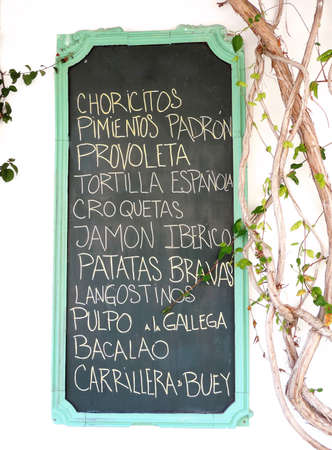 CHORICITOS
PIMIENTOS PADRÓN
PROVOLETA
TORTILLA ESPAÑOLA
CROQUETAS
JAMON IBERICO
PATATAS BRAVAS
LANGOSTINOS
PULPO a la GALLEGA
BACALAO
CARRILLERA BUEY